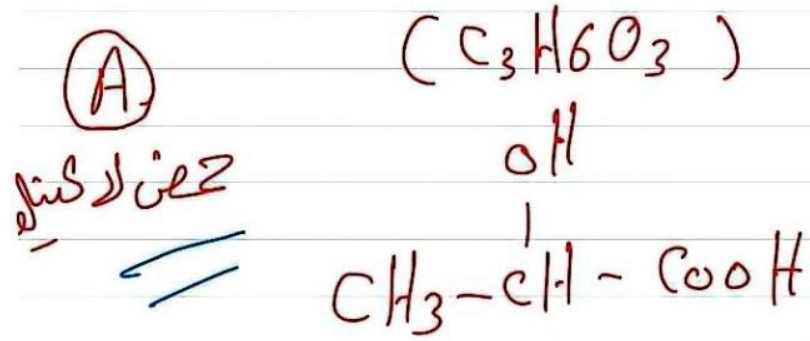 (C3H6O3)
A
حمض لاكتيك
OH
|
CH3-CH-COOH